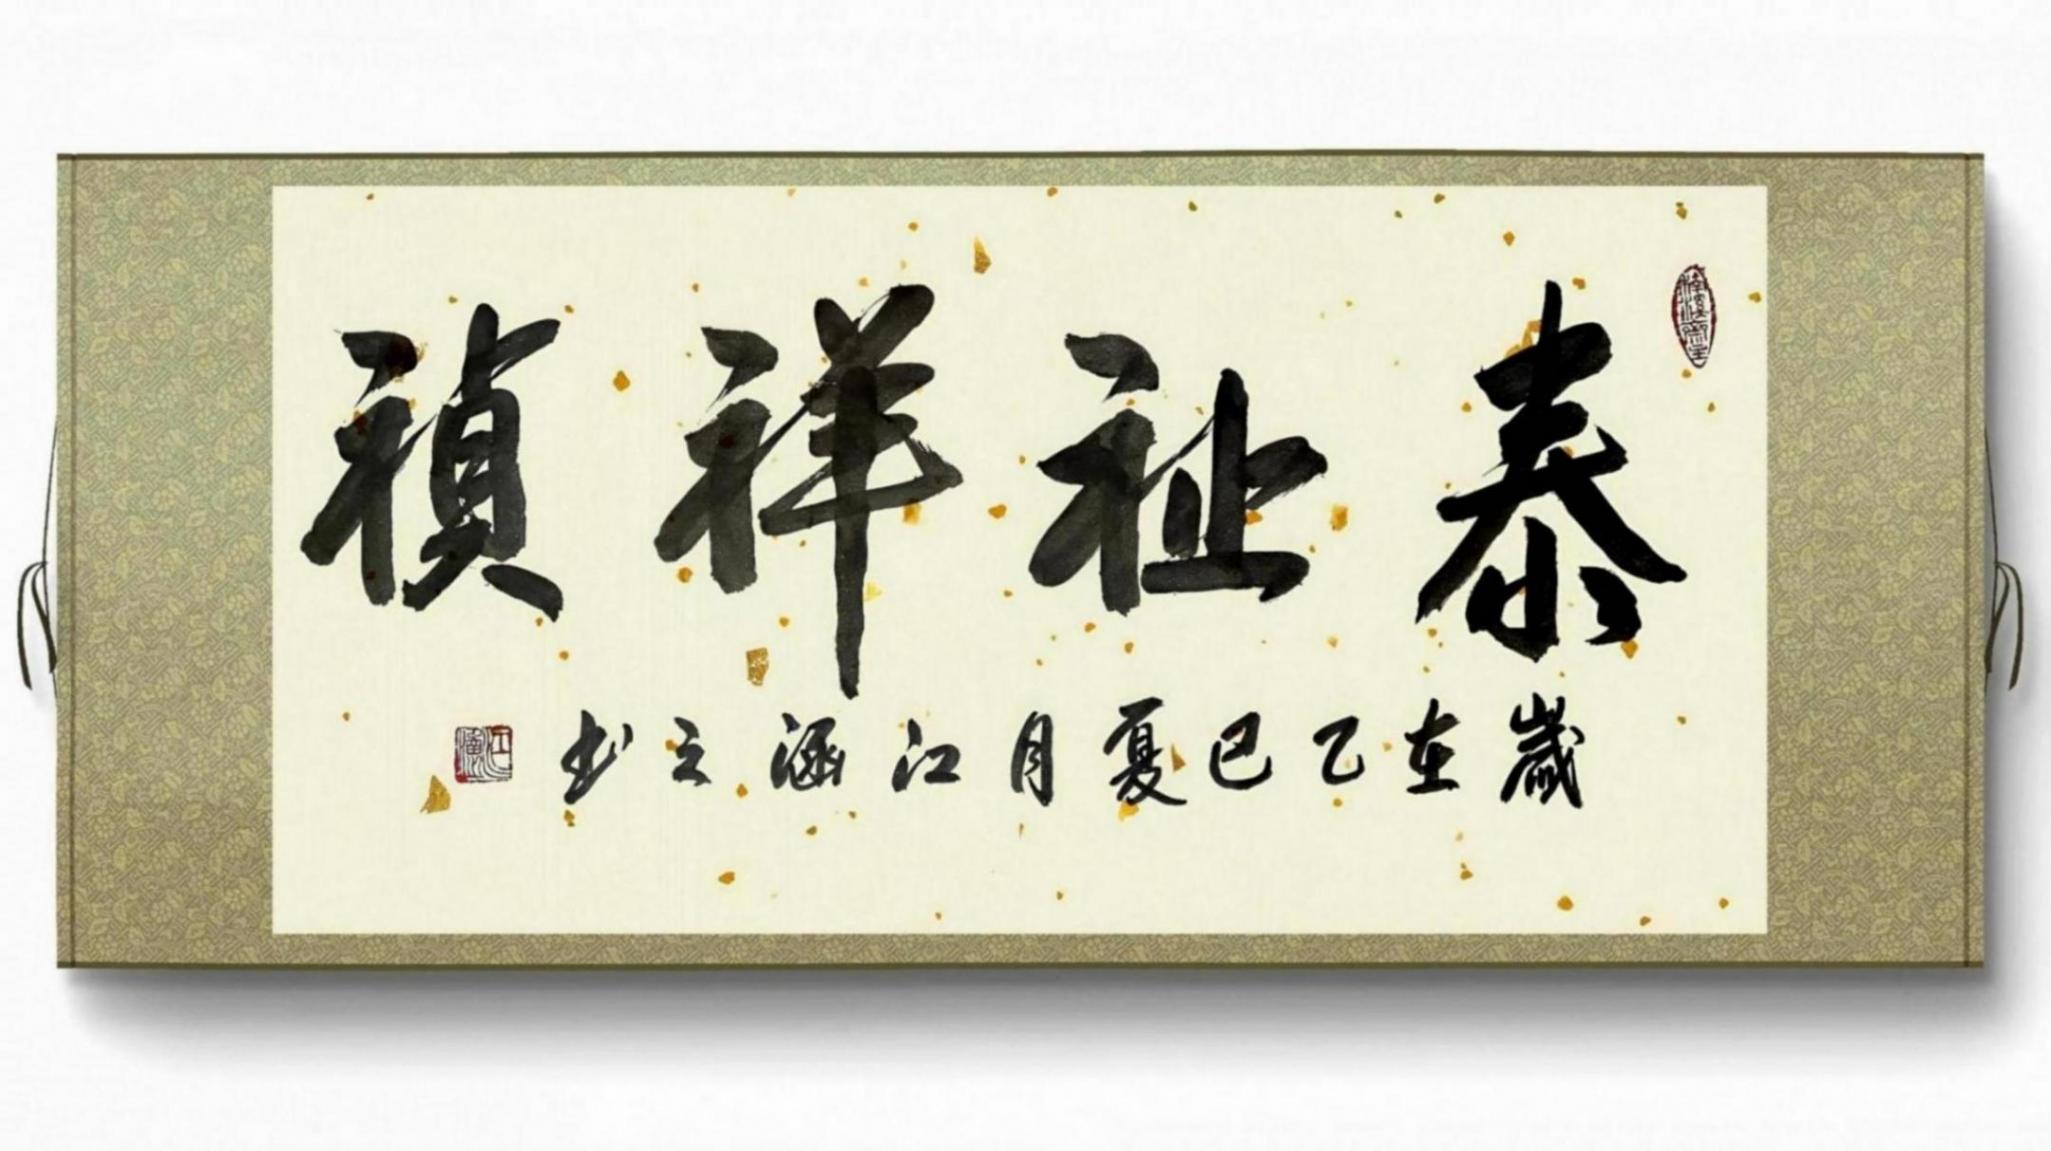 泰祉祥禎
歲在乙巳夏月江涵之书